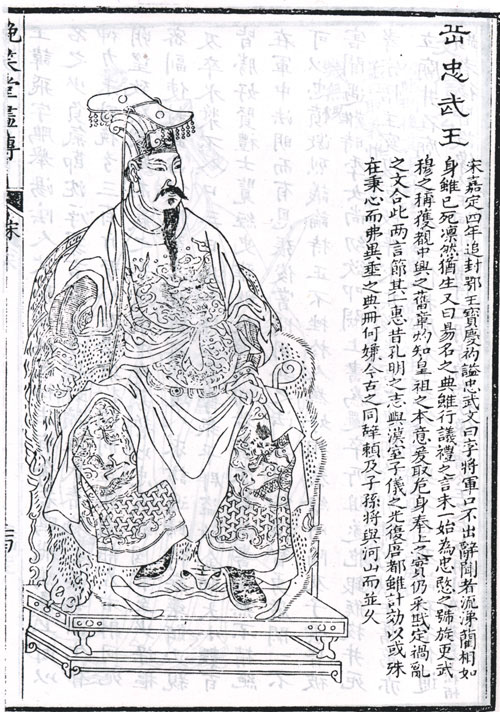 岳忠武王
宋嘉定四年追封鄂王寶慶初謚忠武文曰李將軍口不出辭聞者流涕藺相如
身雖已死凛然猶生又曰易名之典雖行議禮之言未一始為忠愍之號旋更武
穆之稱獲覩中興之舊章灼知皇祖之本意爰取危身奉上之實仍采戡定禍亂
之文合此兩言節其一惠昔孔明之志興漢室子儀之光復唐都雖計効以或殊
在秉心而弗異垂之典册何嫌今古之同辭賴及子孫將與河山而並久
晚笑堂畫傳
宋